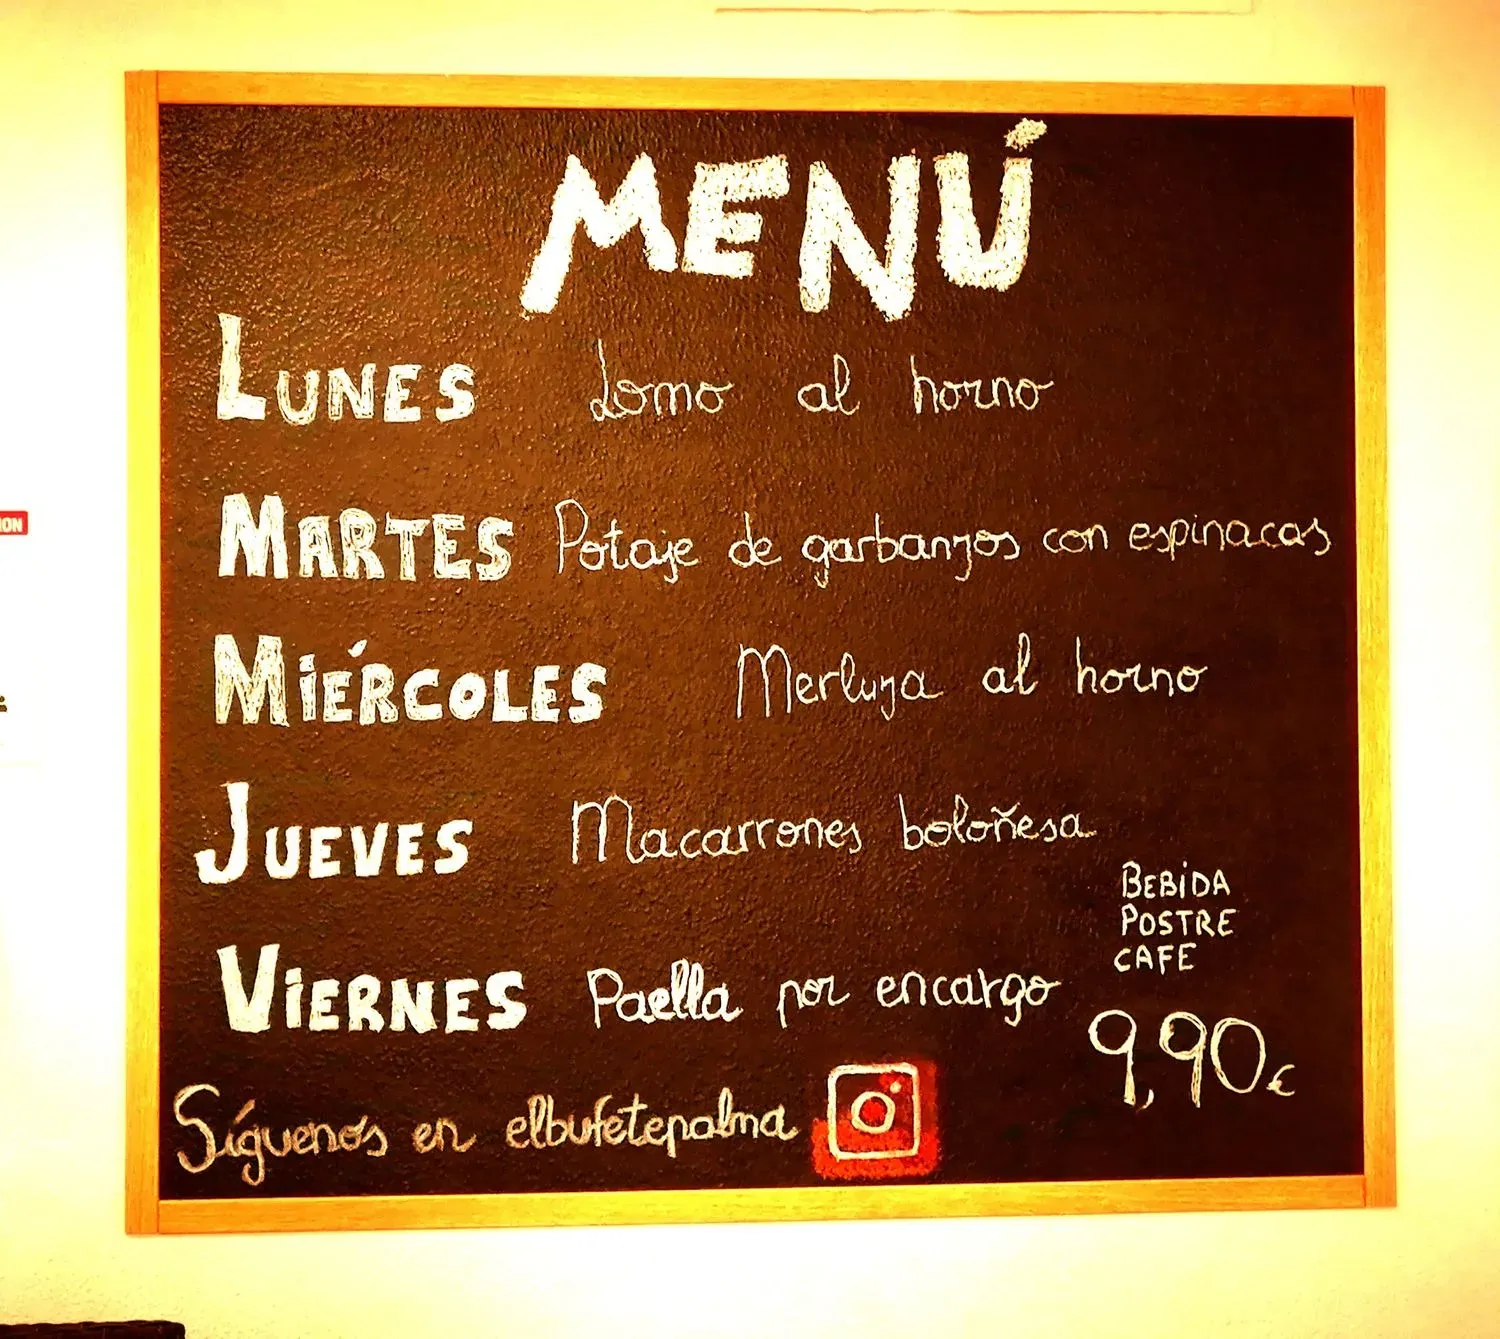 MENÚ
LUNES Lomo al horno
MARTES Potaje de garbanzos con espinacas
MIÉRCOLES Merluza al horno
JUEVES Macarrones boloñesa
VIERNES Paella por encargo
BEBIDA
POSTRE
CAFE
9,90€
Síguenos en elbufetepalma
ION